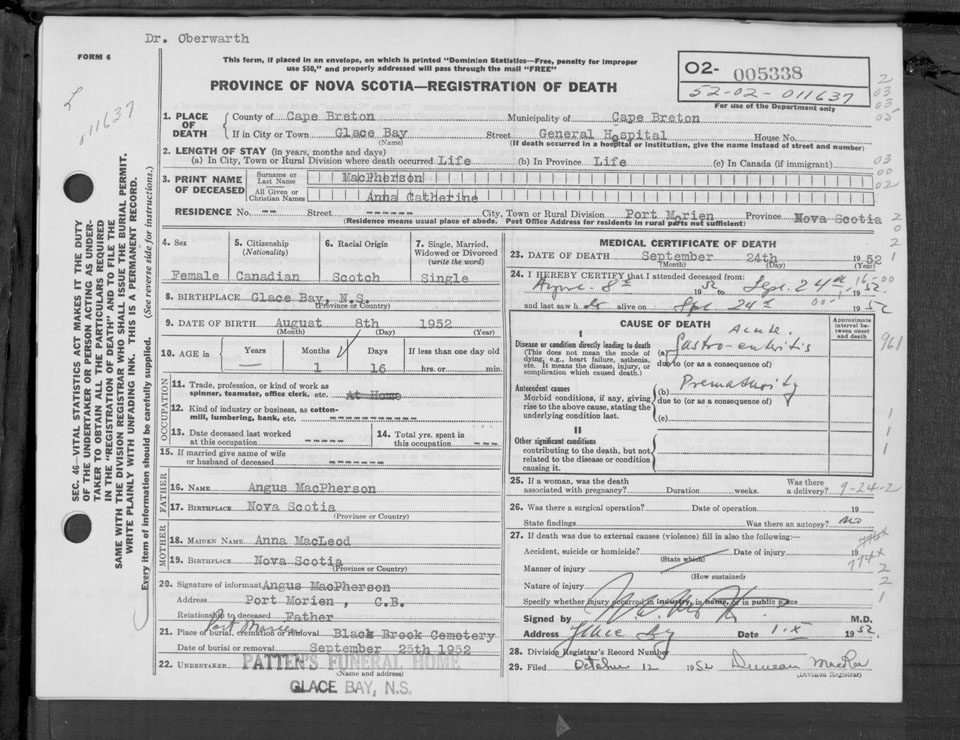 Dr. Oberwarth
FORM 6
This form, if placed in an envelope, on which is printed "Dominion Statistics—Free, penalty for improper
use $50," and properly addressed will pass through the mail "FREE"
PROVINCE OF NOVA SCOTIA—REGISTRATION OF DEATH
02- 005338
52-02-011637
For use of the Department only
011637
1. PLACE OF DEATH
County of Cape Breton Municipality of Cape Breton
If in City or Town Glace Bay Street General Hospital House No.
(Name) (If death occurred in a hospital or institution, give the name instead of street and number)
2. LENGTH OF STAY (in years, months and days)
(a) In City, Town or Rural Division where death occurred Life (b) In Province Life (c) In Canada (if immigrant)
3. PRINT NAME OF DECEASED
Surname or Last Name MacPherson
All Given or Christian Names Anna Catherine
RESIDENCE No. -- Street ------ City, Town or Rural Division Port Morien Province Nova Scotia
(Residence means usual place of abode. Post Office Address for residents in rural parts not sufficient)
4. Sex Female
5. Citizenship (Nationality) Canadian
6. Racial Origin Scotch
7. Single, Married, Widowed or Divorced (write the word) Single
8. BIRTHPLACE Glace Bay, N.S.
(Province or Country)
9. DATE OF BIRTH August 8th 1952
(Month) (Day) (Year)
10. AGE in Years Months Days If less than one day old
1 16 hrs. or min.
OCCUPATION
11. Trade, profession, or kind of work as
spinner, teamster, office clerk, etc. At Home
12. Kind of industry or business, as cotton-
mill, lumbering, bank, etc. -----
13. Date deceased last worked
at this occupation -----
14. Total yrs. spent in
this occupation ---
15. If married give name of wife
or husband of deceased -----
FATHER
16. NAME Angus MacPherson
17. BIRTHPLACE Nova Scotia
(Province or Country)
MOTHER
18. MAIDEN NAME Anna MacLeod
19. BIRTHPLACE Nova Scotia
(Province or Country)
20. Signature of informant Angus MacPherson
Address Port Morien, C.B.
Relationship to deceased Father
Port Morien
21. Place of burial, cremation or removal Black Brook Cemetery
Date of burial or removal September 25th 1952
22. UNDERTAKER PATTEN'S FUNERAL HOME
(Name and address)
GLACE BAY, N.S.
MEDICAL CERTIFICATE OF DEATH
23. DATE OF DEATH September 24th 1952
(Month) (Day) (Year)
24. I HEREBY CERTIFY that I attended deceased from:
August 8th 1952 to Sept. 24th 1952
and last saw h alive on Sept 24th 1952
CAUSE OF DEATH
Approximate interval between onset and death
I
Disease or condition directly leading to death
(This does not mean the mode of
dying, e.g., heart failure, asthenia,
etc. It means the disease, injury, or
complication which caused death.)
(a) Acute Gastro-enteritis
due to (or as a consequence of)
Antecedent causes
Morbid conditions, if any, giving
rise to the above cause, stating the
underlying condition last.
(b) Prematurity
due to (or as a consequence of)
(c)
II
Other significant conditions
contributing to the death, but not
related to the disease or condition
causing it.
25. If a woman, was the death Was there
associated with pregnancy? Duration weeks. a delivery? 9-24-2
26. Was there a surgical operation? Date of operation 19
State findings Was there an autopsy? No
27. If death was due to external causes (violence) fill in also the following:—
Accident, suicide or homicide? Date of injury 19
(State which)
Manner of injury
(How sustained)
Nature of injury
Specify whether injury occurred in industry, in home, or in public place
Signed by M.D.
Address Glace Bay Date 1.X 1952
28. Division Registrar's Record Number
29. Filed October 12 1952 Duncan
(Division Registrar)
SEC. 46—VITAL STATISTICS ACT MAKES IT THE DUTY
OF THE UNDERTAKER OR PERSON ACTING AS UNDER-
TAKER TO OBTAIN ALL THE PARTICULARS REQUIRED
IN THE "REGISTRATION OF DEATH" AND TO FILE THE
SAME WITH THE DIVISION REGISTRAR WHO SHALL ISSUE THE BURIAL PERMIT.
WRITE PLAINLY WITH UNFADING INK. THIS IS A PERMANENT RECORD.
Every item of information should be carefully supplied. (See reverse side for instructions.)
2
03
03
05
03
00
02
2
0
2
1
961
1
1
1
2
2
1